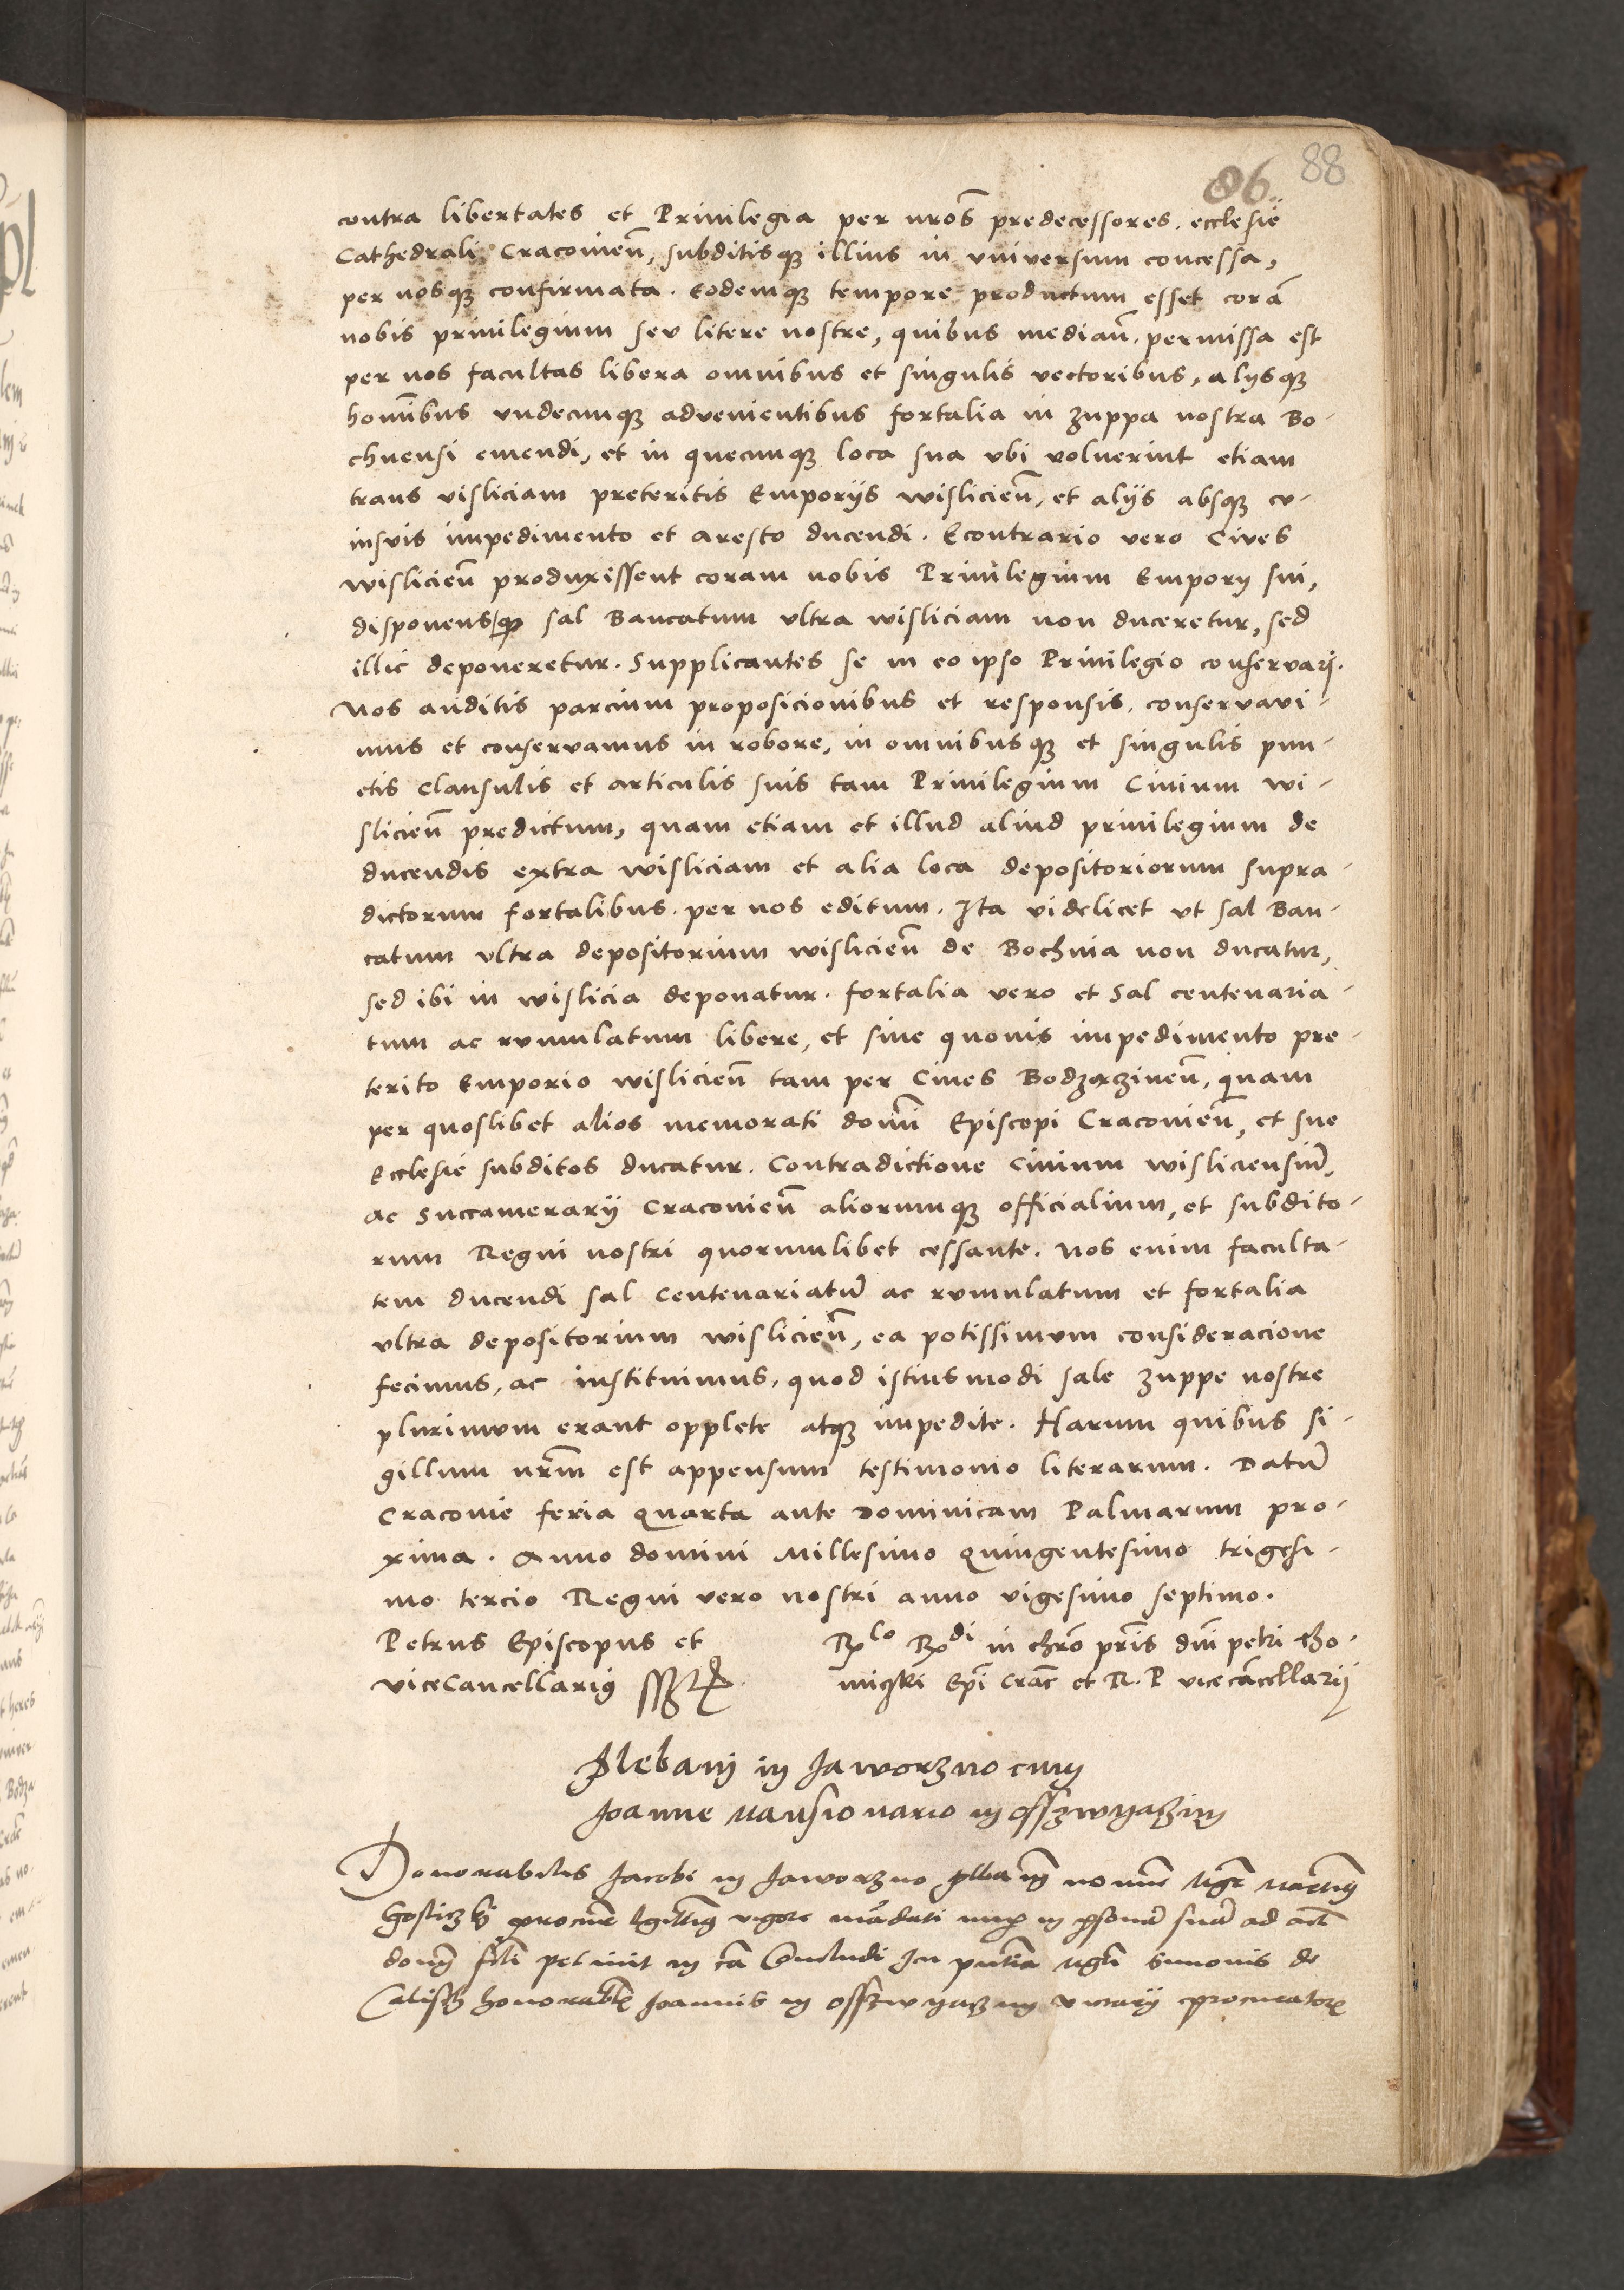 86. 88
contra libertates et Privilegia per nros̃ predecessores. ecclesie
Cathedrali Cracovieñ, subditisqꝫ illius in vniversum concessa,
per nosqꝫ confirmata. Eodemqꝫ tempore productum esset corã
nobis privilegium seu litere nostre, quibus mediañ. permissa est
per nos facultas libera omnibus et singulis vectoribus, alijsqꝫ
homĩbus vndecunqꝫ advenientibus fortalia in zuppa nostra Bo-
chnensi emendi, et in quecunqꝫ loca sua vbi voluerint etiam
trans visliciam preteritis Emporijs wislicieñ, et alijs absqꝫ cu-
iusvis impedimento et aresto ducendi. Econtrario vero Cives
wislicieñ produxissent coram nobis Privilegium Emporij sui,
disponens qꝫ sal Bancatum vltra wisliciam non duceretur, sed
illic deponeretur. Supplicantes se in eo ipso Privilegio conservari.
Nos auditis parcium proposicionibus et responsis. conservavi-
mus et conservamus in robore, in omnibusqꝫ et singulis pun-
ctis Clausulis et articulis suis tam Privilegium Civium wi-
slicieñ predictum, quam etiam et illud aliud privilegium de
ducendis extra wisliciam et alia loca depositoriorum supra-
dictorum fortalibus. per nos editum. Ita videlicet vt sal Ban-
catum vltra depositorium wislicieñ de Bochnia non ducatur,
sed ibi in wislicia deponatur. fortalia vero et Sal centenaria-
tum ac rumulatum libere, et sine quovis impedimento pre-
terito Emporio wislicieñ tam per Cives Bodzęczineñ, quam
per quoslibet alios memorati domĩ Episcopi Cracovieñ, et sue
Ecclesie subditos ducatur. Contradictione Civium wisliciensiũ,
ac Succamerarij Cracovieñ aliorumqꝫ officialium, et subdito-
rum Regni nostri quorumlibet cessante. Nos enim faculta-
tem ducendi sal Centenariatũ ac rumulatum et fortalia
vltra depositorium wislicieñ, ea potissimum consideracione
fecimus, ac instituimus, quod istiusmodi sale zuppe nostre
plurimum erant opplete atqꝫ impedite. Harum quibus si-
gillum nrm̃ est appensum testimonio literarum. Datũ
Cracovie feria quarta ante Dominicam Palmarum pro-
xima. Anno domini Millesimo quingentesimo trigesi-
mo tercio Regni vero nostri anno vigesimo septimo.
Petrus Episcopus et
Vicecancellarius
Rꝫlo Rꝫdi in chrõ pris̃ dnĩ petri tho-
miczki Epĩ Crac̃ et R. P vicecãcellarij
Plebani in Jaworzno cum
Joanne mansionario in Osszwyaczim
Honorabilis Jacobi in Jaworzno plbani nomine Mgr̃
vigore mãdati in psonã suã ad act
petiit in cã Concludi In pñtia Mgrĩ Simonis de
Calisch honorabil Joannis in Osszwyaczim vicarij procuratoris